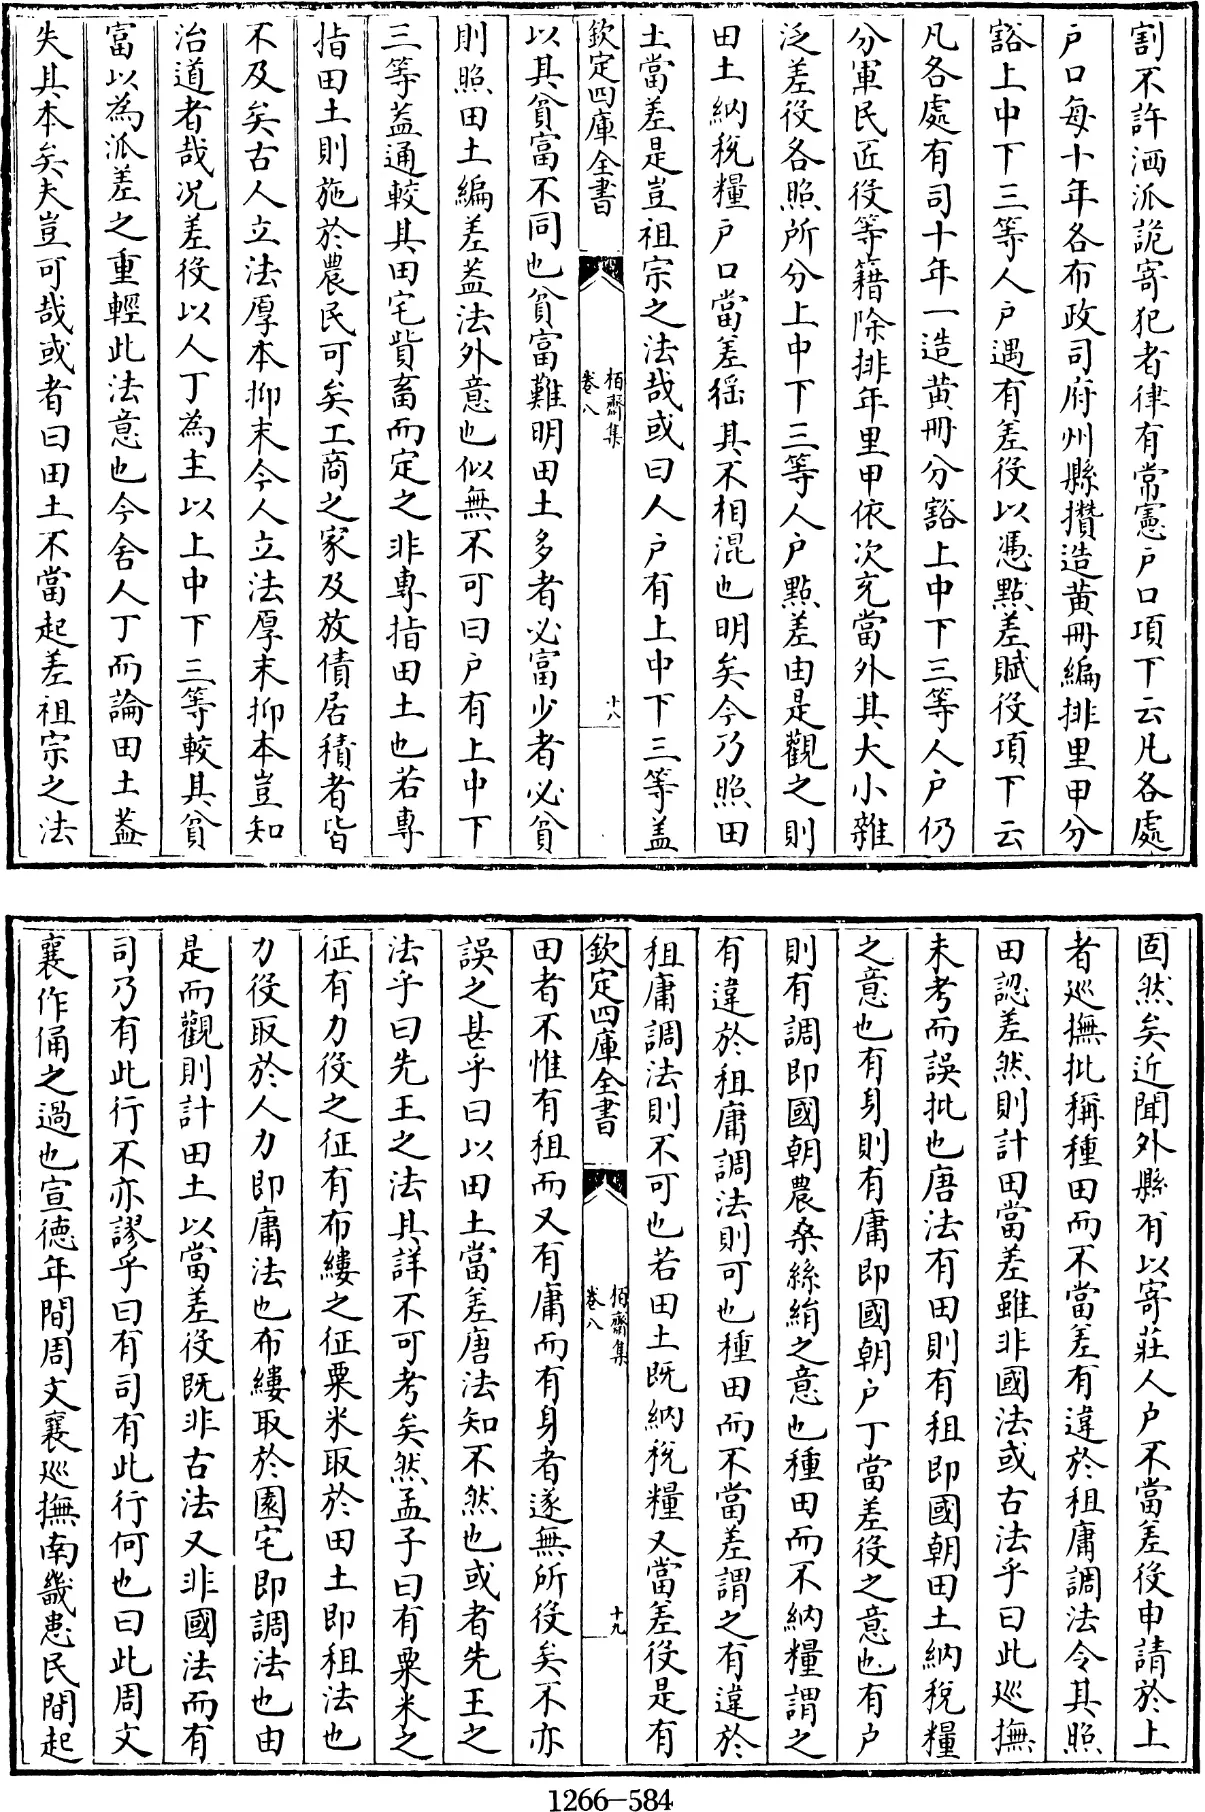 割不許洒派詭寄犯者律有常憲户口項下云凡各處
户口每十年各布政司府州縣攢造黄冊編排里甲分
豁上中下三等人户遇有差役以憑㸃差賦役項下云
凡各處有司十年一造黄冊分豁上中下三等人户仍
分軍民匠役等籍除排年里甲依次充當外其大小雜
泛差役各照所分上中下三等人户㸃差由是觀之則
田土納稅糧户口當差徭其不相混也明矣今乃照田
土當差是豈祖宗之法哉或曰人户有上中下三等盖
欽定四庫全書
栢齋集
卷八
十八
以其貧富不同也貧富難明田土多者必富少者必貧
則照田土編差盖法外意也似無不可曰户有上中下
三等盖通較其田宅貲畜而定之非專指田土也若專
指田土則施於農民可矣工商之家及放債居積者皆
不及矣古人立法厚本抑末今人立法厚末抑本豈知
治道者哉况差役以人丁為主以上中下三等較其貧
富以為派差之重輕此法意也今舍人丁而論田土盖
失其本矣夫豈可哉或者曰田土不當起差祖宗之法
固然矣近聞外縣有以寄莊人户不當差役申請於上
者巡撫批稱種田而不當差有違於租庸調法令其照
田認差然則計田當差雖非國法或古法乎曰此巡撫
未考而誤批也唐法有田則有租即國朝田土納稅糧
之意也有身則有庸即國朝户丁當差役之意也有户
則有調即國朝農桑絲絹之意也種田而不納糧謂之
有違於租庸調法則可也種田而不當差謂之有違於
租庸調法則不可也若田土既納稅糧又當差役是有
欽定四庫全書
栢齋集
卷八
十九
田者不惟有租而又有庸而有身者遂無所役矣不亦
誤之甚乎曰以田土當差唐法知不然也或者先王之
法乎曰先王之法其詳不可考矣然孟子曰有粟米之
征有力役之征有布縷之征粟米取於田土即租法也
力役取於人力即庸法也布縷取於園宅即調法也由
是而觀則計田土以當差役既非古法又非國法而有
司乃有此行不亦謬乎曰有司有此行何也曰此周文
襄作俑之過也宣德年間周文襄巡撫南畿患民間起
1266-584